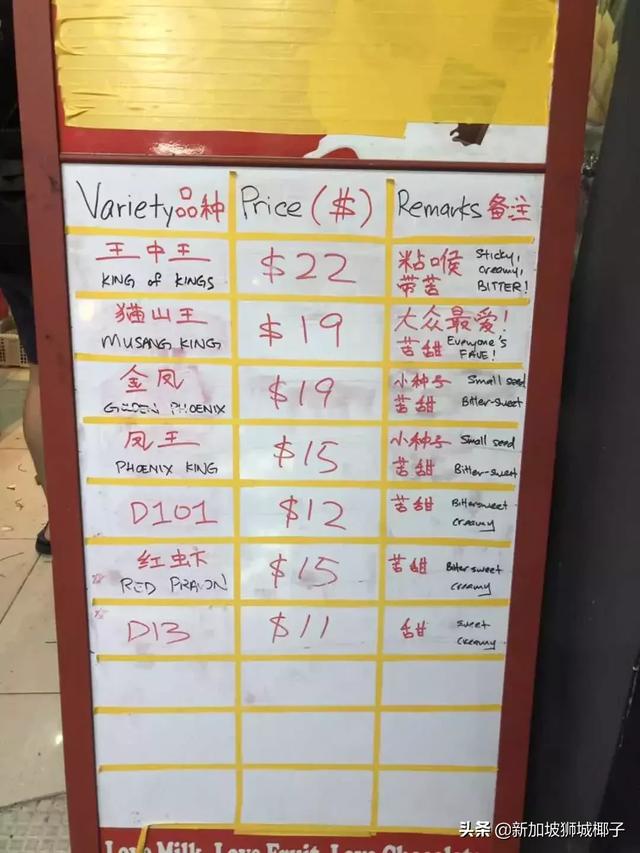 Variety品种 Price ($) Remarks 备注
王中王 $22 粘喉 Sticky,
KING of KINGS 带苦 creamy,
BITTER!
猫山王 $19 大众最爱!
MUSANG KING 苦甜 Everyone's
FAVE!
金凤 $19 小种子 Small seed
GOLDEN PHOENIX 苦甜 Bitter-sweet
凤王 $15 小种子 Small seed
PHOENIX KING 苦甜 Bitter-sweet
D101 $12 苦甜 Bittersweet
creamy
红虾 $15 苦甜 Bittersweet
RED PRAWN creamy
D13 $11 甜 sweet
creamy
Love Milk, Love Fruit, Love Chocolate
头条 @新加坡狮城椰子